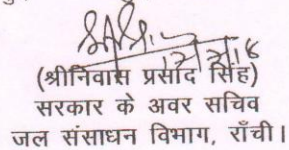 (श्रीनिवास प्रसाद सिंह)
सरकार के अवर सचिव
जल संसाधन विभाग, राँची।